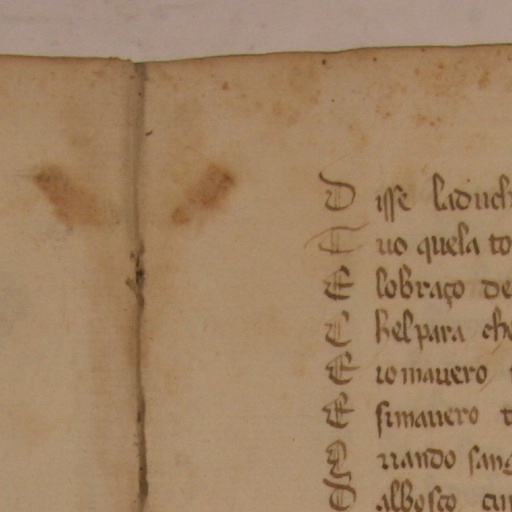 D isse laduch
T uo quela to
E lobraço de
C helpara che
E iomauero
E simauero t
Q uando sang
D albosco cu